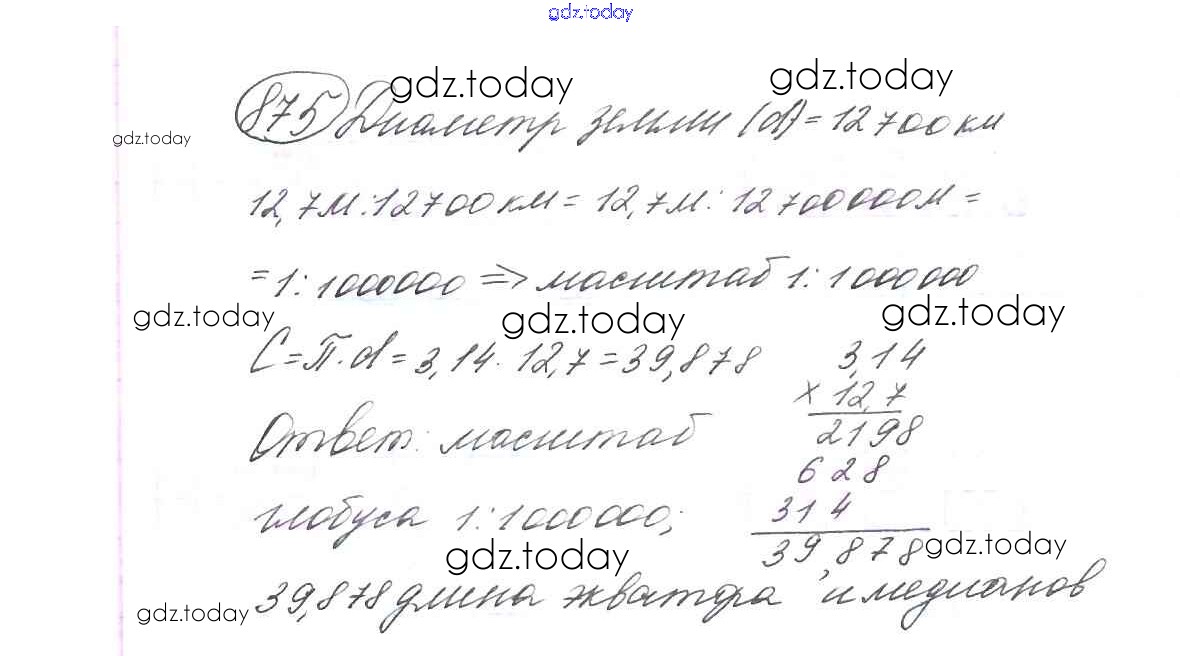 gdz.today
gdz.today gdz.today
875 Диаметр земли (d) = 12700 км
gdz.today
12,7м : 12700 км = 12,7м : 12700000м =
= 1 : 1000000 => масштаб 1 : 1000000
gdz.today gdz.today gdz.today
C = П · d = 3,14 · 12,7 = 39,878
3,14
× 12,7
2198
628
314
39,878
Ответ: масштаб
глобуса 1 : 1000000;
gdz.today gdz.today
39,878 длина экватора и медианов
gdz.today